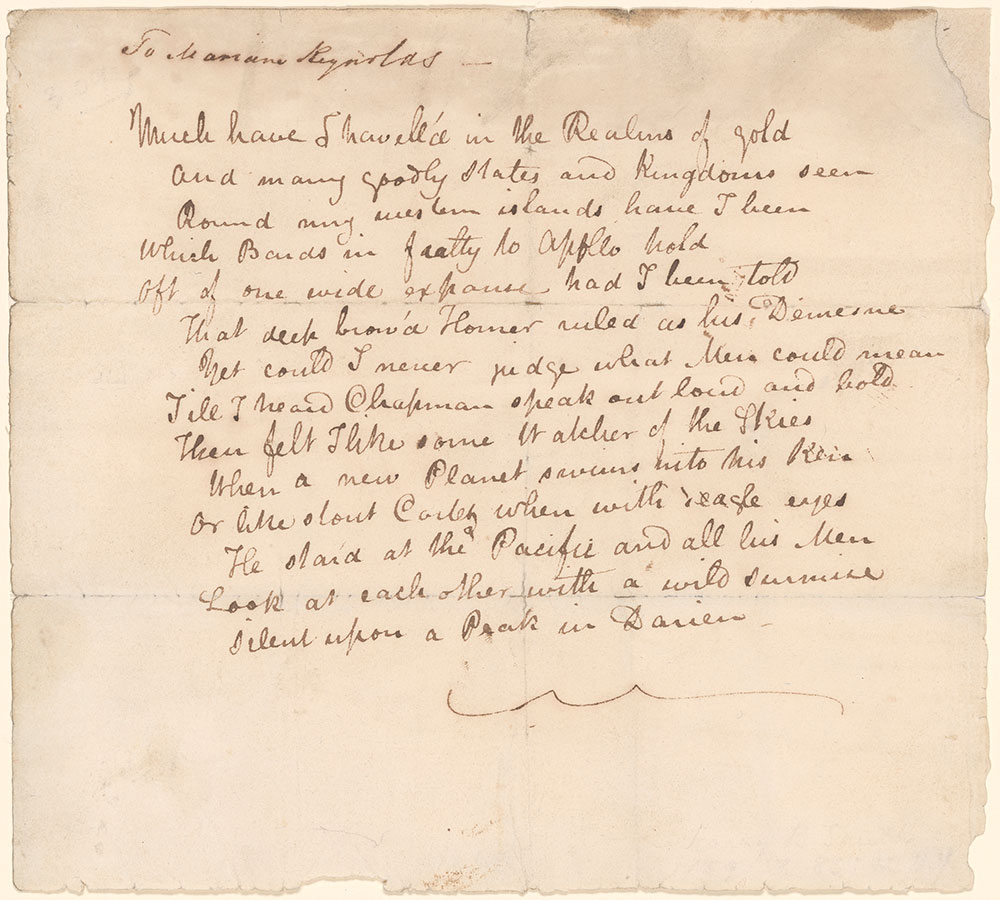 To Mariane Reynolds —
Much have I travell'd in the Realms of gold
and many goodly States and Kingdoms seen
Round many western islands have I been
Which Bards in fealty to Apollo hold
Oft of one wide expanse had I been told
That deep brow'd Homer ruled as his Demesne
Yet could I never judge what Men could mean
Till I heard Chapman speak out loud and bold
Then felt I like some Watcher of the Skies
When a new Planet swims into his Ken
Or like stout Cortez when with eagle eyes
He star'd at the Pacific and all his Men
Look at each other with a wild surmise
Silent upon a Peak in Darien —